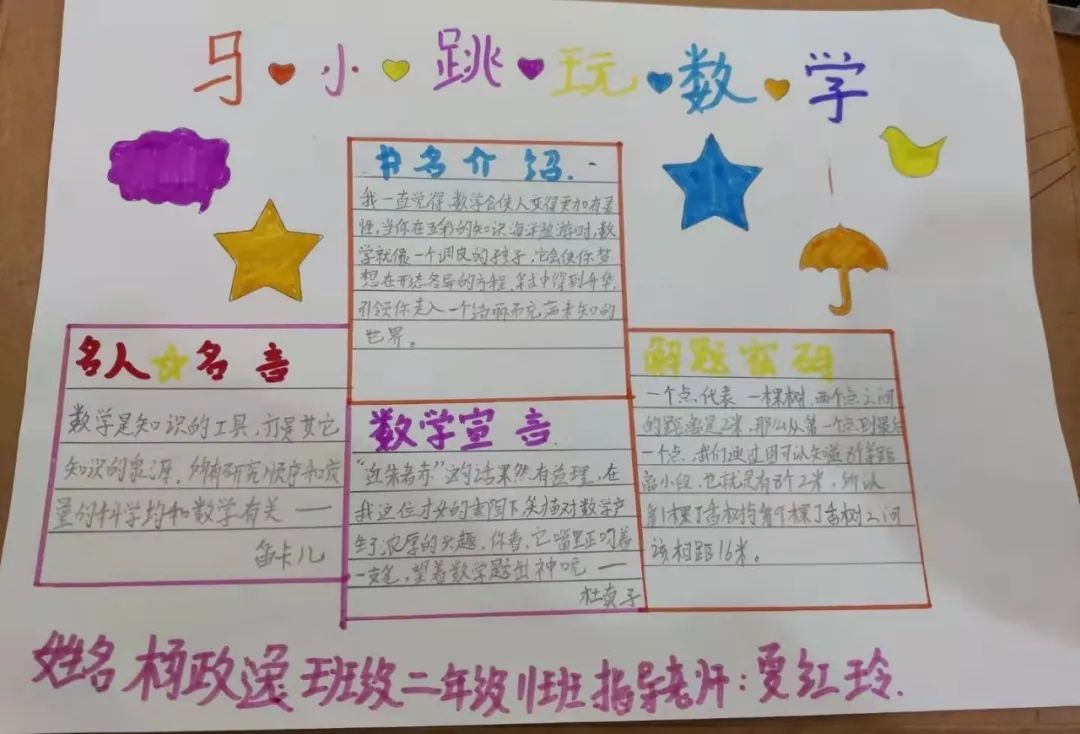 马小跳玩数学
书名介绍
我一直觉得,数学会使人变得更加有灵
性,当你在五彩的知识海洋遨游时,数
学就像一个调皮的孩子,它会使你梦
想在形态各异的方程、算式中得到升华,
引领你走入一个绚丽而充满未知的
世界。
名人名言
数学是知识的工具,亦是其它
知识的泉源,所有研究顺序和度
量的科学均和数学有关——
笛卡儿
数学宣言
"近朱者赤"这句话果然有益理,在
我这位才女的熏陶下,笑猫对数学产
生了浓厚的兴趣,你看,它嘴里正叼着
一支笔,望着数学题出神呢——
杜真子
解题密码
一个点代表一棵树,两个点之间
的距离是2米,那么从第一个点到最后
一个点,我们通过图可以知道8个等距
离小段,也就是有8个2米,所以
第1棵丁香树与第9棵丁香树之间
该相距16米。
姓名杨政逸 班级二年级1班 指导老师:贾红玲.